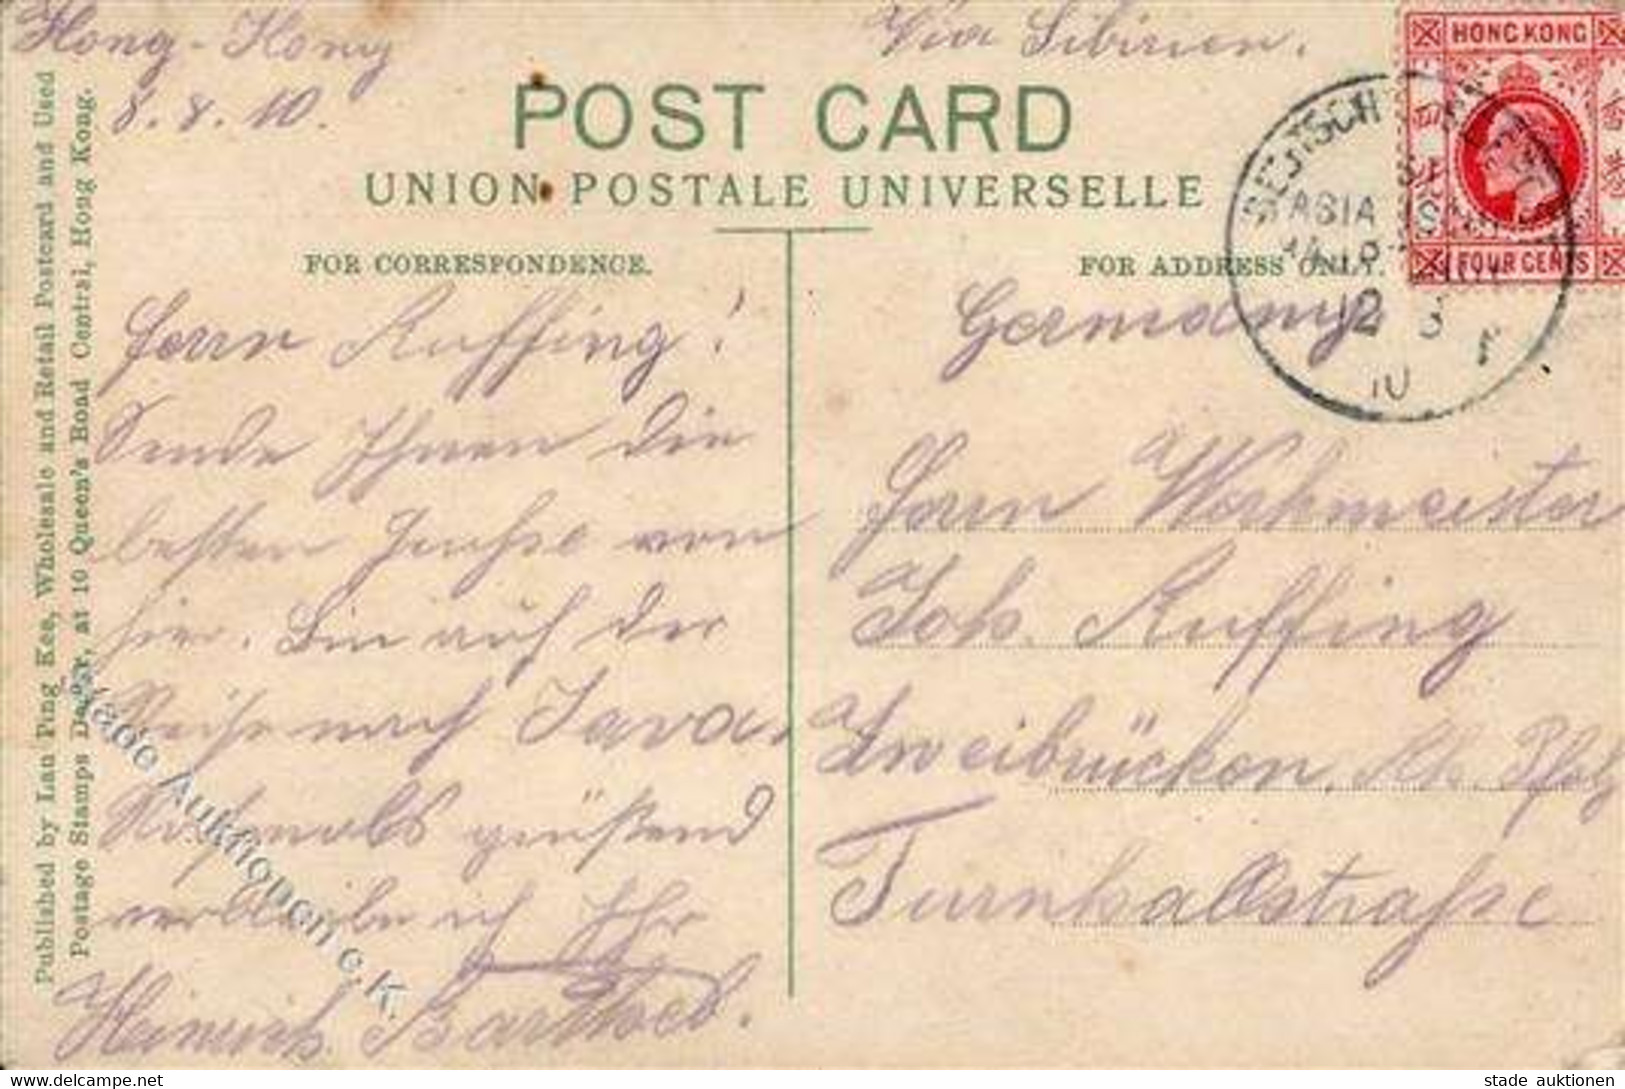 Hong-Kong
8.8.10.
Via Sibirien.
POST CARD
UNION POSTALE UNIVERSELLE
FOR CORRESPONDENCE.
FOR ADDRESS ONLY.
HONG KONG
四
香港
FOUR CENTS
DEUTSCHE SEEPOST
ASIA
12 8
10
Published by Lau Ping Kee, Wholesale and Retail Postcard and Used
Postage Stamps Dealer, at 10 Queen's Road Central, Hong Kong.
Herrn Ruffing!
Sende Ihnen die
besten Grüsse von
hier. Bin auf der
Reise nach Java.
Nochmals grüßend
verbleibe ich Ihr
Heinrich Barthel.
Germany
Herrn Werkmeister
Joh. Ruffing
Zweibrücken, Rh. Pfalz
Turnhallstraße
Stade Auktionen e.K.
stade auktionen